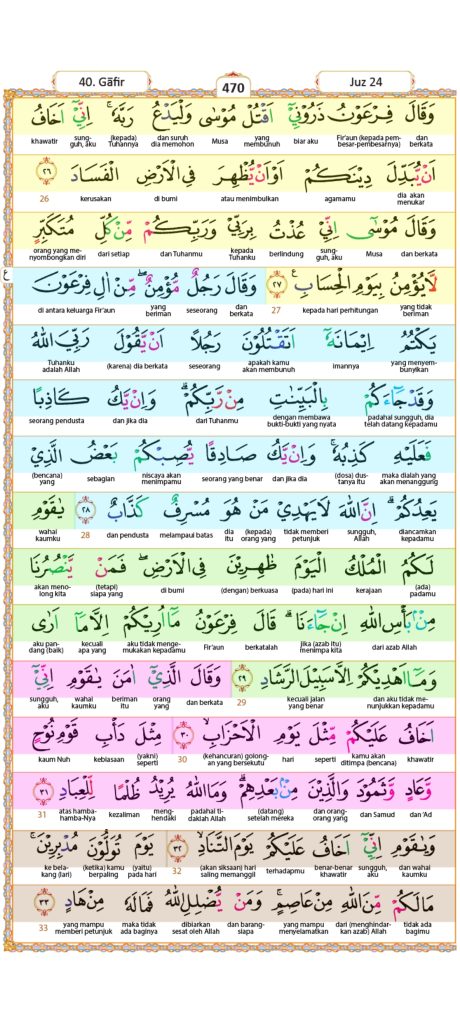 40. Gāfir 470 Juz 24
وَقَالَ فِرْعَوْنُ ذَرُوْنِيْٓ اَقْتُلْ مُوْسٰى وَلْيَدْعُ رَبَّهٗ ۚ اِنِّيْٓ اَخَافُ
dan berkata Fir'aun (kepada pem-besar-pembesarnya) biar aku yang membunuh Musa dan suruh dia memohon (kepada) Tuhannya sung-guh, aku khawatir
اَنْ يُّبَدِّلَ دِيْنَكُمْ اَوْ اَنْ يُّظْهِرَ فِى الْاَرْضِ الْفَسَادَ ٢٦
dia akan menukar agamamu atau menimbulkan di bumi kerusakan 26
وَقَالَ مُوْسٰىٓ اِنِّيْ عُذْتُ بِرَبِّيْ وَرَبِّكُمْ مِّنْ كُلِّ مُتَكَبِّرٍ
dan berkata Musa sung-guh, aku berlindung kepada Tuhanku dan Tuhanmu dari setiap orang yang me-nyombongkan diri
لَّا يُؤْمِنُ بِيَوْمِ الْحِسَابِ ࣖ ٢٧ وَقَالَ رَجُلٌ مُّؤْمِنٌۖ مِّنْ اٰلِ فِرْعَوْنَ
ع
yang tidak beriman kepada hari perhitungan 27 dan berkata seseorang yang beriman di antara keluarga Fir'aun
يَكْتُمُ اِيْمَانَهٗٓ اَتَقْتُلُوْنَ رَجُلًا اَنْ يَّقُوْلَ رَبِّيَ اللّٰهُ
yang menyem-bunyikan imannya apakah kamu akan membunuh seseorang (karena) dia berkata Tuhanku adalah Allah
وَقَدْ جَاۤءَكُمْ بِالْبَيِّنٰتِ مِنْ رَّبِّكُمْ ۗ وَاِنْ يَّكُ كَاذِبًا
padahal sungguh, dia telah datang kepadamu dengan membawa bukti-bukti yang nyata dari Tuhanmu dan jika dia seorang pendusta
فَعَلَيْهِ كَذِبُهٗ ۚ وَاِنْ يَّكُ صَادِقًا يُّصِبْكُمْ بَعْضُ الَّذِيْ
maka dialah yang akan menanggung (dosa) dus-tanya itu dan jika dia seorang yang benar niscaya akan menimpamu sebagian (bencana) yang
يَعِدُكُمْ ۚ اِنَّ اللّٰهَ لَا يَهْدِيْ مَنْ هُوَ مُسْرِفٌ كَذَّابٌ ٢٨ يٰقَوْمِ
diancamkan kepadamu sungguh, Allah tidak memberi petunjuk (kepada) orang yang dia itu melampaui batas dan pendusta 28 wahai kaumku
لَكُمُ الْمُلْكُ الْيَوْمَ ظٰهِرِيْنَ فِى الْاَرْضِۖ فَمَنْ يَّنْصُرُنَا
(ada) padamu kerajaan (pada) hari ini (dengan) berkuasa di bumi (tetapi) siapa yang akan meno-long kita
مِنْۢ بَأْسِ اللّٰهِ اِنْ جَاۤءَنَا ۗ قَالَ فِرْعَوْنُ مَآ اُرِيْكُمْ اِلَّا مَآ اَرٰى
dari azab Allah jika (azab itu) menimpa kita berkatalah Fir'aun aku tidak menge-mukakan kepadamu kecuali apa yang aku pan-dang (baik)
وَمَآ اَهْدِيْكُمْ اِلَّا سَبِيْلَ الرَّشَادِ ٢٩ وَقَالَ الَّذِيْٓ اٰمَنَ يٰقَوْمِ اِنِّيْٓ
dan aku tidak me-nunjukkan kepadamu kecuali jalan yang benar 29 dan berkata orang yang beriman itu wahai kaumku sungguh, aku
اَخَافُ عَلَيْكُمْ مِّثْلَ يَوْمِ الْاَحْزَابِۙ ٣٠ مِثْلَ دَأْبِ قَوْمِ نُوْحٍ
khawatir kamu akan ditimpa (bencana) seperti hari (kehancuran) golong-an yang bersekutu 30 (yakni) seperti kebiasaan kaum Nuh
وَّعَادٍ وَّثَمُوْدَ وَالَّذِيْنَ مِنْۢ بَعْدِهِمْ ۗ وَمَا اللّٰهُ يُرِيْدُ ظُلْمًا لِّلْعِبَادِ ٣١
dan 'Ad dan Samud dan orang-orang yang (datang) setelah mereka padahal ti-daklah Allah meng-hendaki kezaliman atas hamba-hamba-Nya 31
وَيٰقَوْمِ اِنِّيْٓ اَخَافُ عَلَيْكُمْ يَوْمَ التَّنَادِۙ ٣٢ يَوْمَ تُوَلُّوْنَ مُدْبِرِيْنَۚ
dan wahai kaumku sungguh, aku benar-benar khawatir terhadapmu (akan siksaan) hari saling memanggil 32 (yaitu) pada hari (ketika) kamu berpaling ke bela-kang (lari)
مَا لَكُمْ مِّنَ اللّٰهِ مِنْ عَاصِمٍۚ وَمَنْ يُّضْلِلِ اللّٰهُ فَمَا لَهٗ مِنْ هَادٍ ٣٣
tidak ada bagimu dari (menghindar-kan azab) Allah yang mampu menyelamatkan dan barang-siapa dibiarkan sesat oleh Allah maka tidak ada baginya yang mampu memberi petunjuk 33